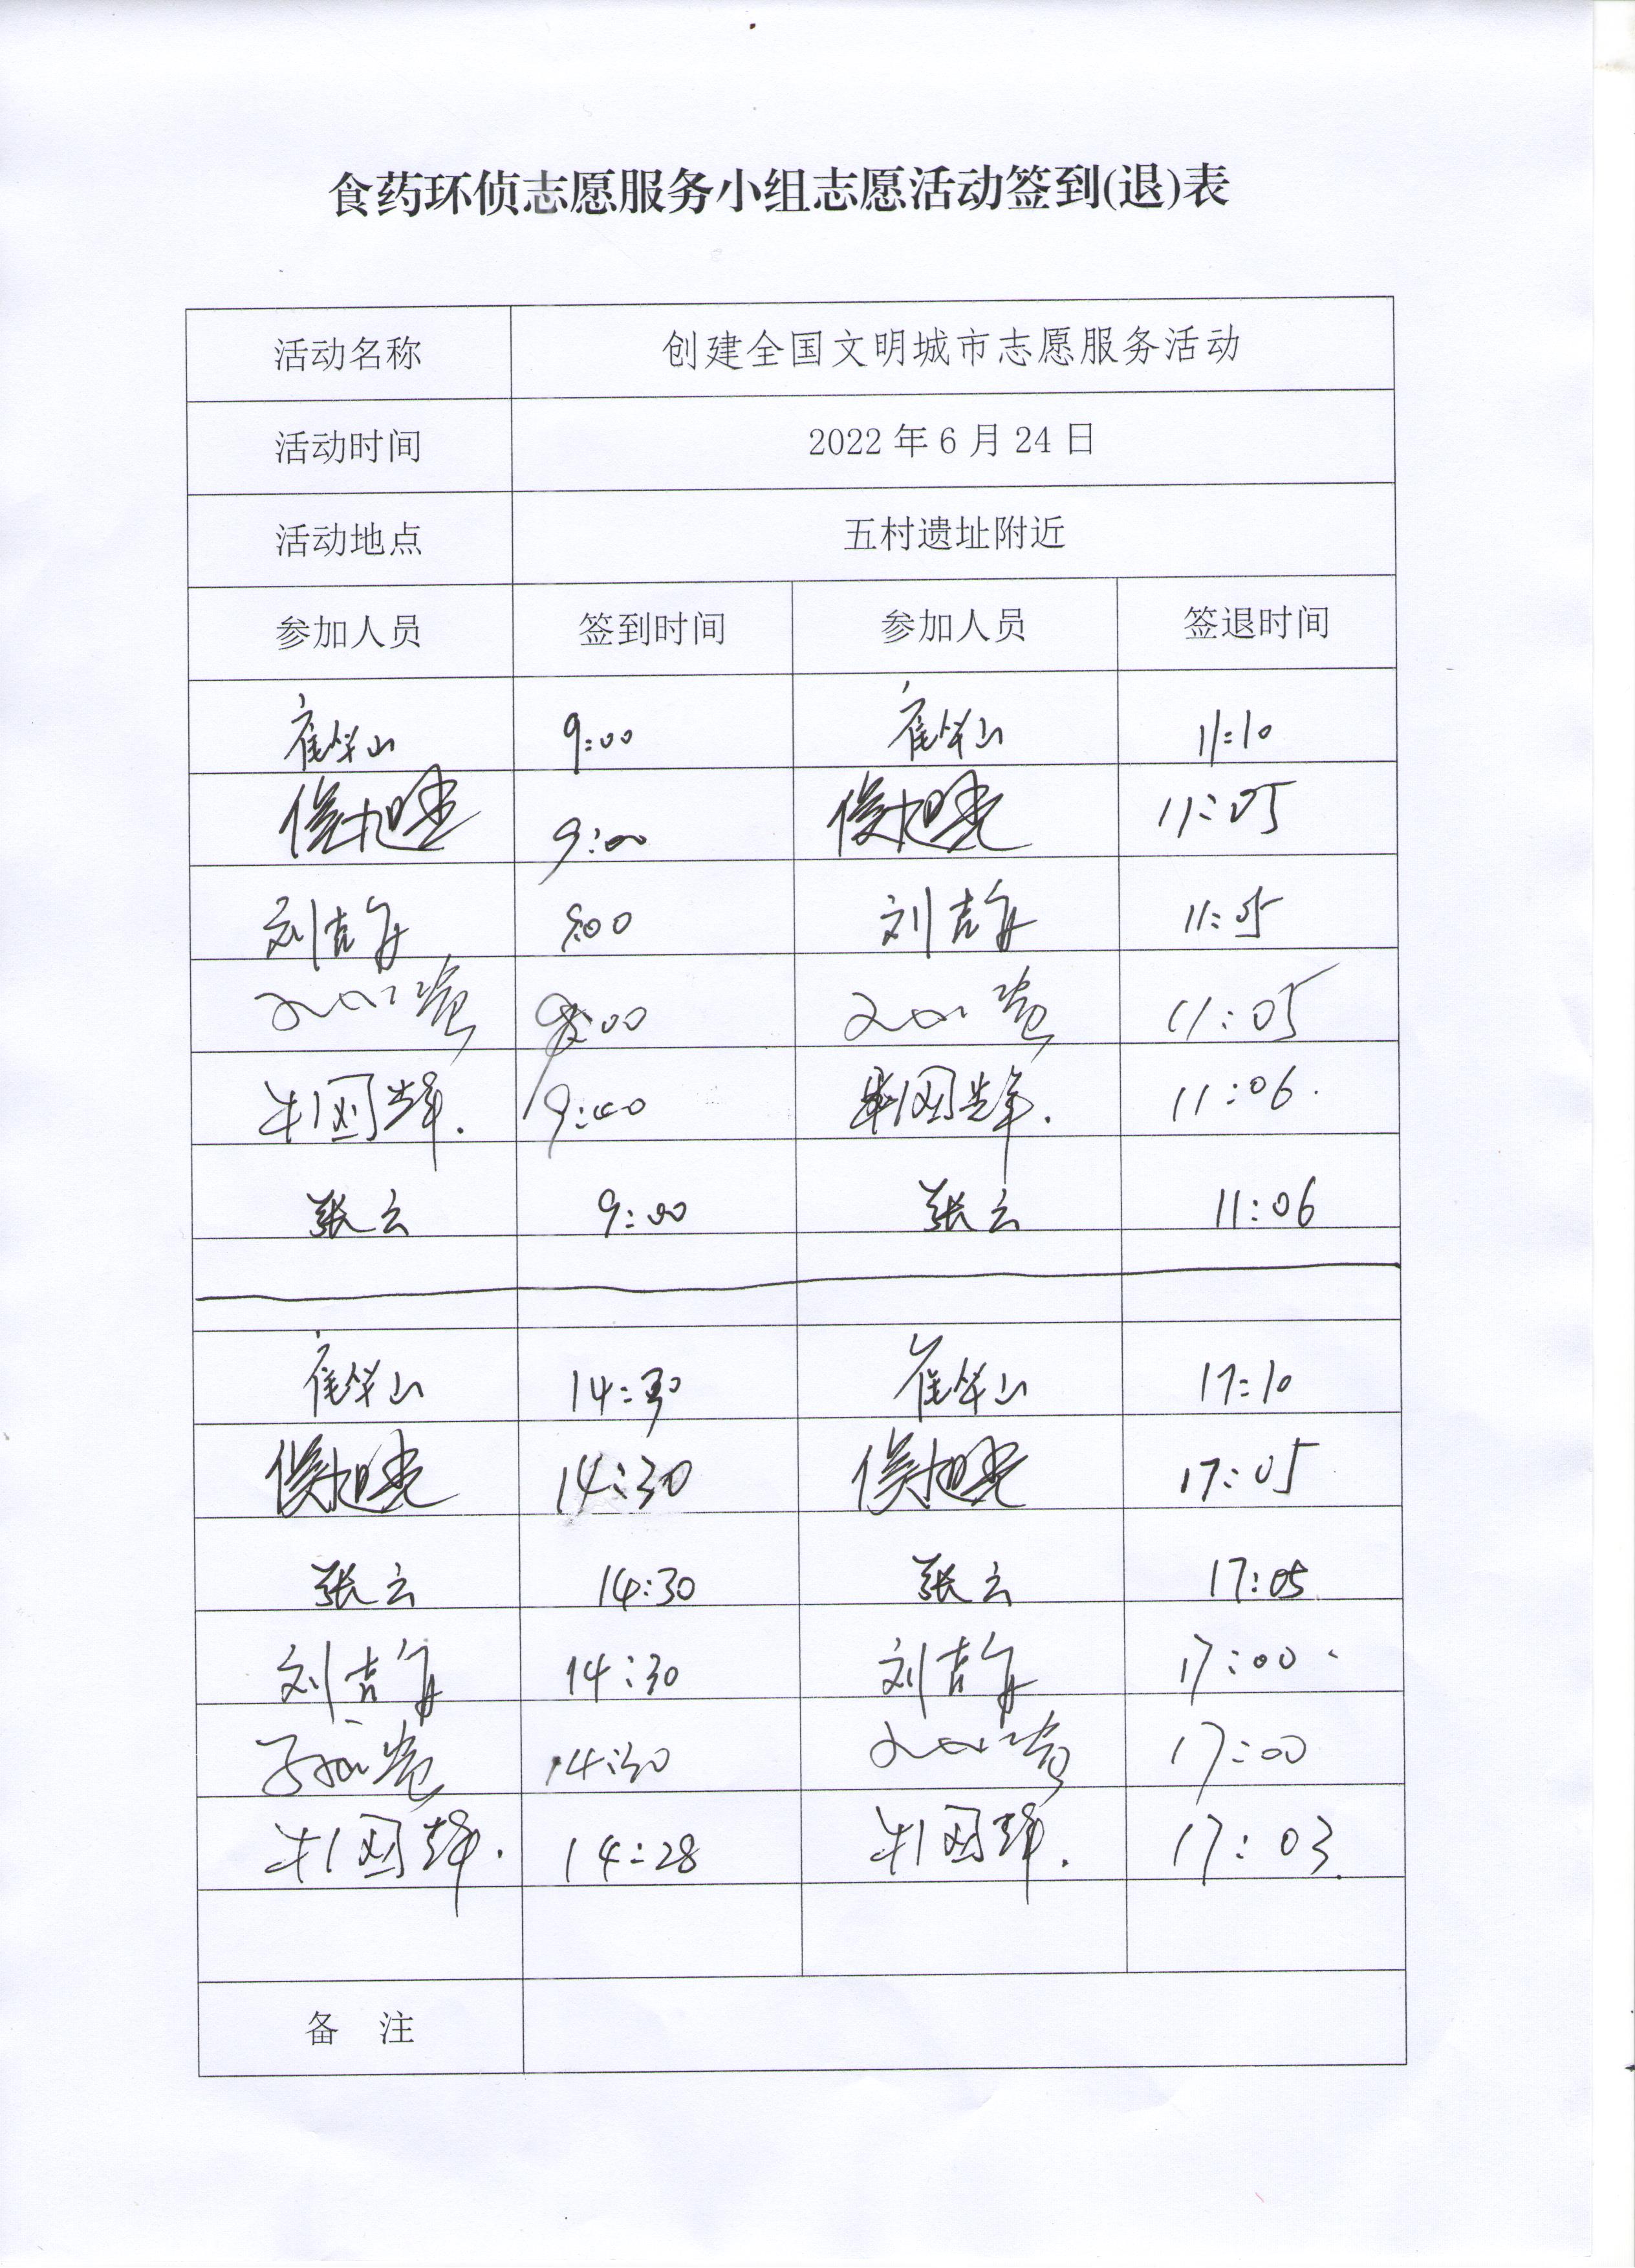 食药环侦志愿服务小组志愿活动签到(退)表
活动名称 创建全国文明城市志愿服务活动
活动时间 2022年6月24日
活动地点 五村遗址附近
参加人员 签到时间 参加人员 签退时间
9:00 11:10
侯旭光 9:00 侯旭光 11:05
刘吉 9:00 刘吉 11:05
9:00 11:05
牛国辉. 牛国辉. 11:06.
张云 9:00 张云 11:06
14:30 17:10
侯旭光 14:30 侯旭光 17:05
张云 14:30 张云 17:05
刘吉 14:30 刘吉 17:00
14:30 17:00
牛国辉. 14:28 牛国辉. 17:03.
备 注